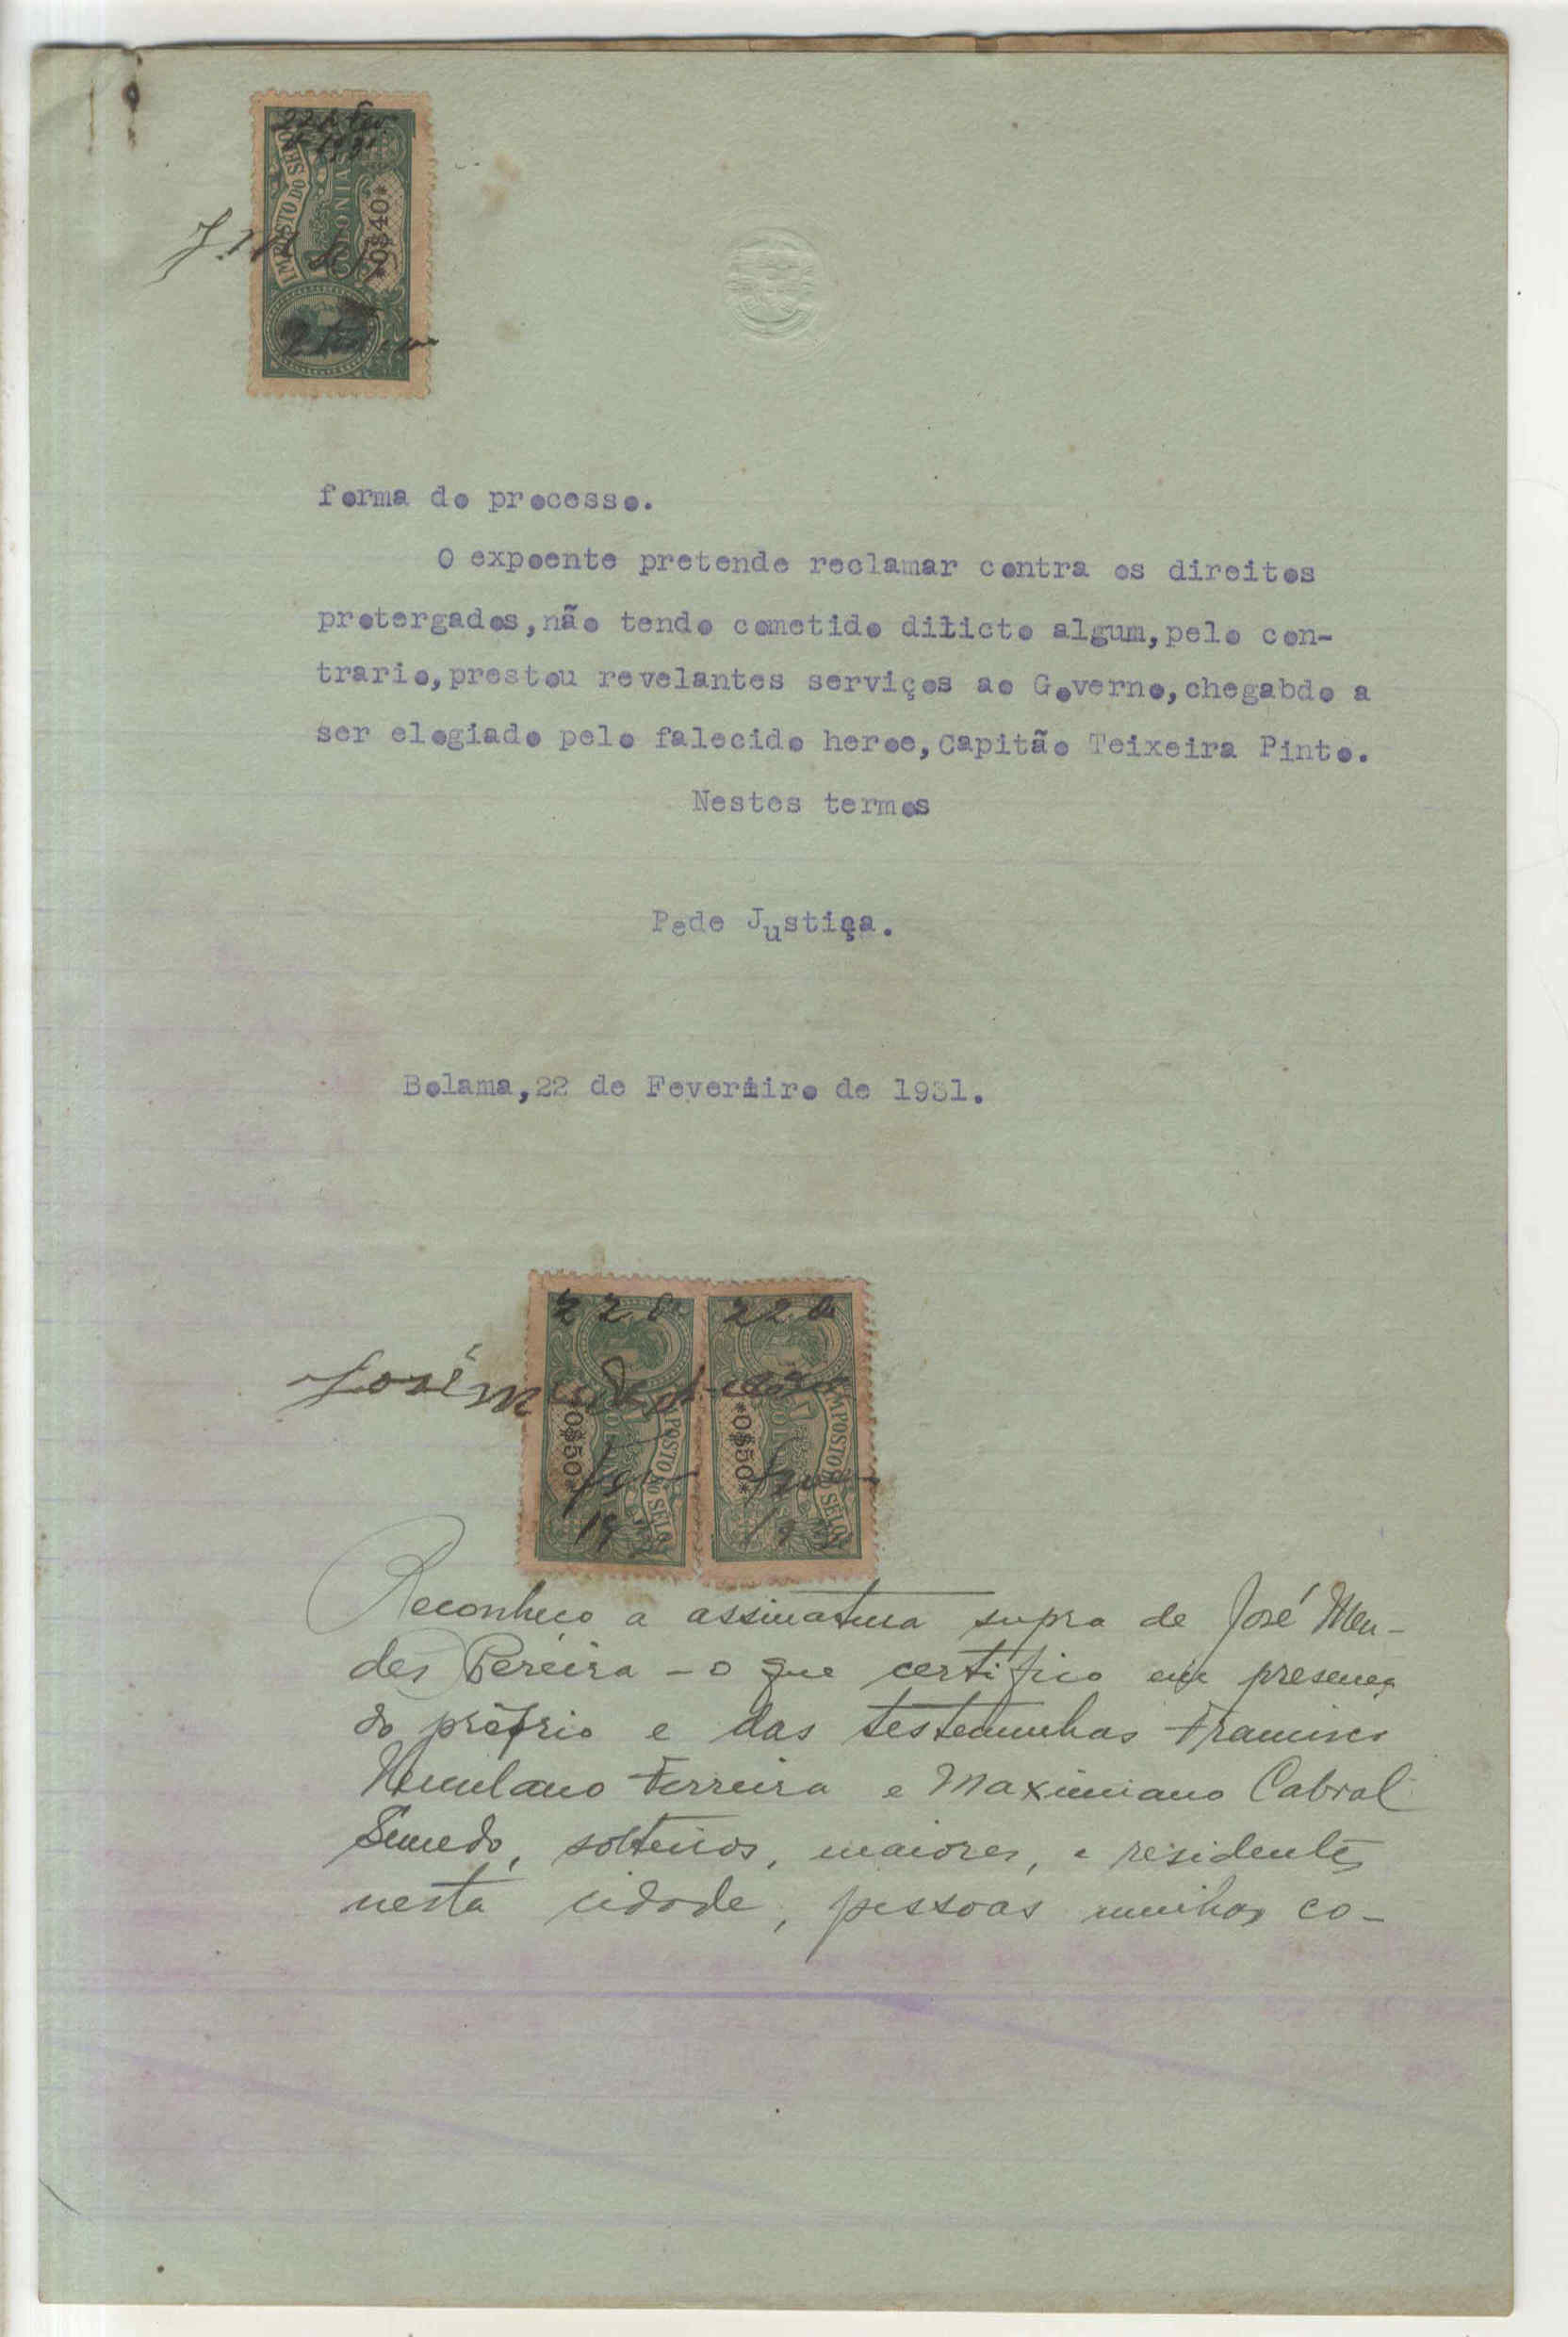 22 de Fev
de 1931
IMPOSTO DO SELO
COLONIAS
*0$40*
forma do processo.
O expoente pretende reclamar contra os direitos
protergados, não tendo cometido dilicto algum, pelo con-
trario, prestou revelantes serviços ao Governo, chegabdo a
ser elogiado pelo falecido heroe, Capitão Teixeira Pinto.
Nestes termos
Pede Justiça.
Bolama, 22 de Fevereiro de 1931.
22 de 22 de
José Mendes Pereira
*0$50* IMPOSTO DO SELO *0$50* IMPOSTO DO SELO
Reconheço a assinatura supra de José Men-
des Pereira - o que certifico em presença
do próprio e das testemunhas Francisco
Herculano Ferreira e Maximiano Cabral
Semedo, solteiros, maiores, e residentes
nesta cidade, pessoas minhas co-